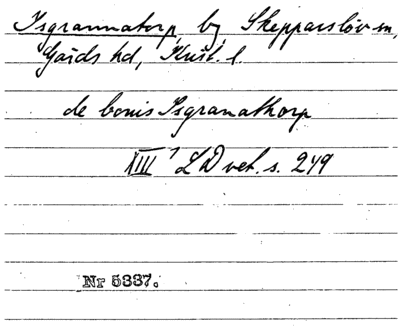 Isgrannatorp, by Skepparslöv sn,
Gärds hd, Krist. l.
de bonis Isgranathorp
XIII ' LD vet. s. 249
Nr 5337.